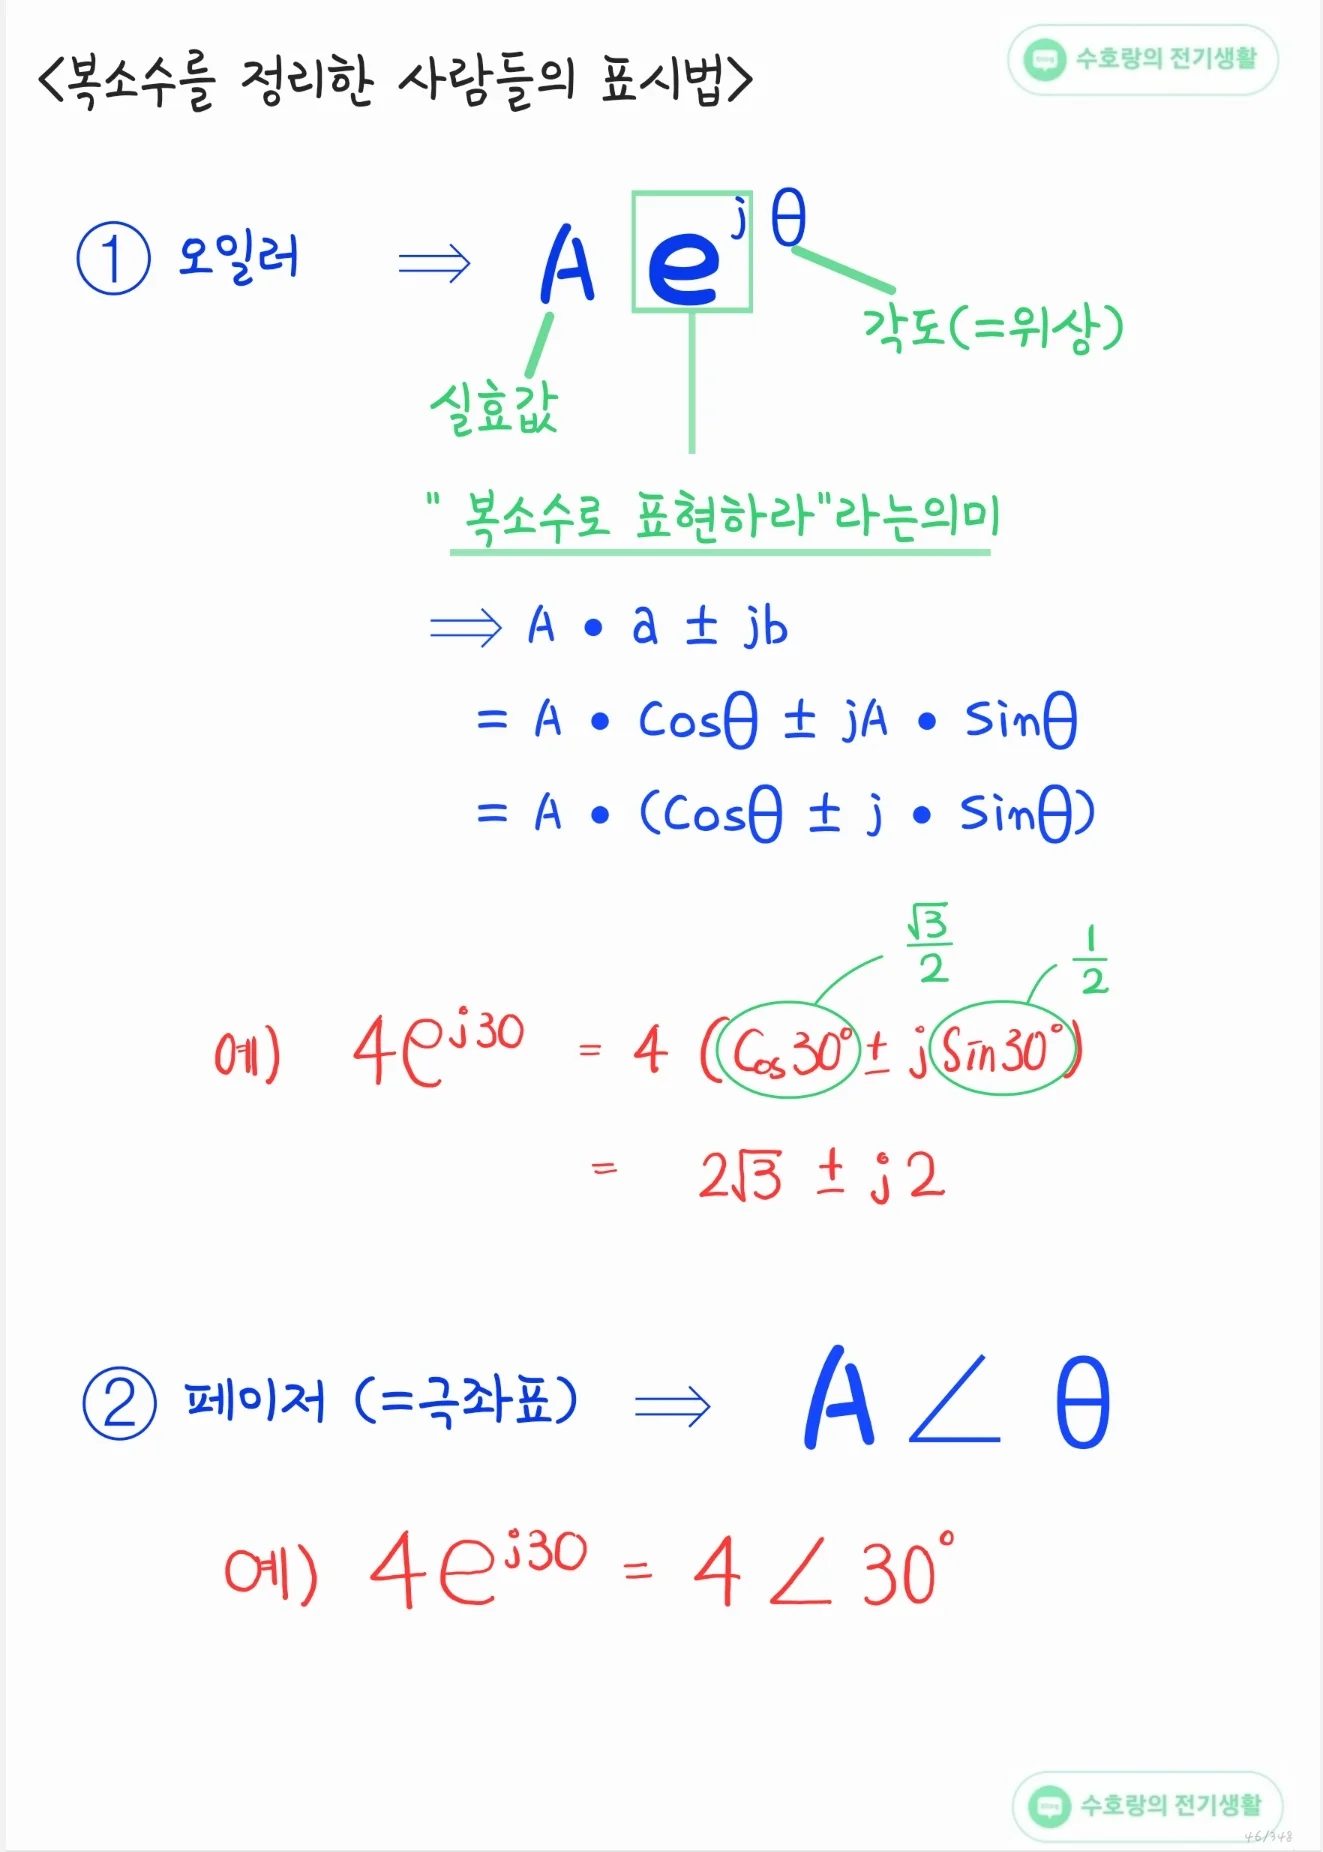 <복소수를 정리한 사람들의 표시법>
수호랑의 전기생활
① 오일러 ⇒ A e^j θ
각도(=위상)
실효값
" 복소수로 표현하라"라는의미
⇒ A • a ± jb
= A • Cosθ ± jA • Sinθ
= A • (Cosθ ± j • Sinθ)
√3/2
1/2
예) 4e^j30 = 4 (Cos30° ± jSin30°)
= 2√3 ± j2
② 페이저 (=극좌표) ⇒ A∠ θ
예) 4e^j30 = 4∠30°
blog 수호랑의 전기생활
46/348